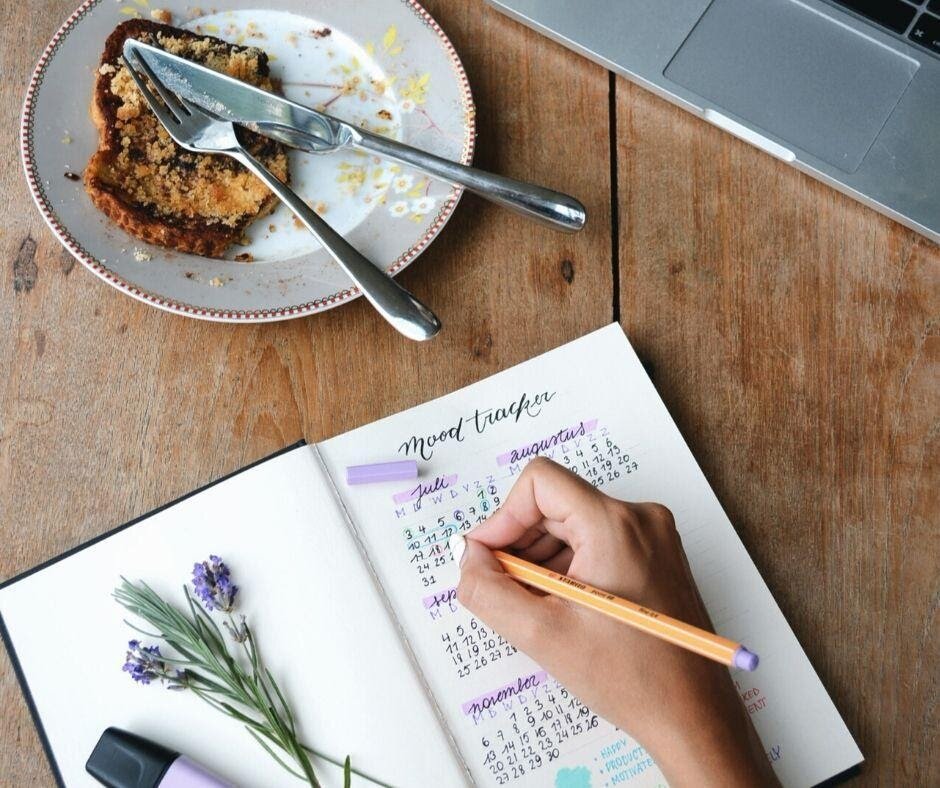 mood tracker
juli
M D W D V Z Z
1 2
3 4 5 6 7 8 9
10 11 12 13
17 18
24 25
31
augustus
D W D V Z Z
3 4 5 6
10 11 12 13
18 19 20
27
sep
M D
4 5 6
11 12 13
18 19 20
25 26 27 28
november
M D W D V
1 2 3 4 5
6 7 8 9 10 11
13 14 15 16 17 18
20 21 22 23 24 25
27 28 29 30
HAPPY
PRODUCT
MOTIVATE
STABILO